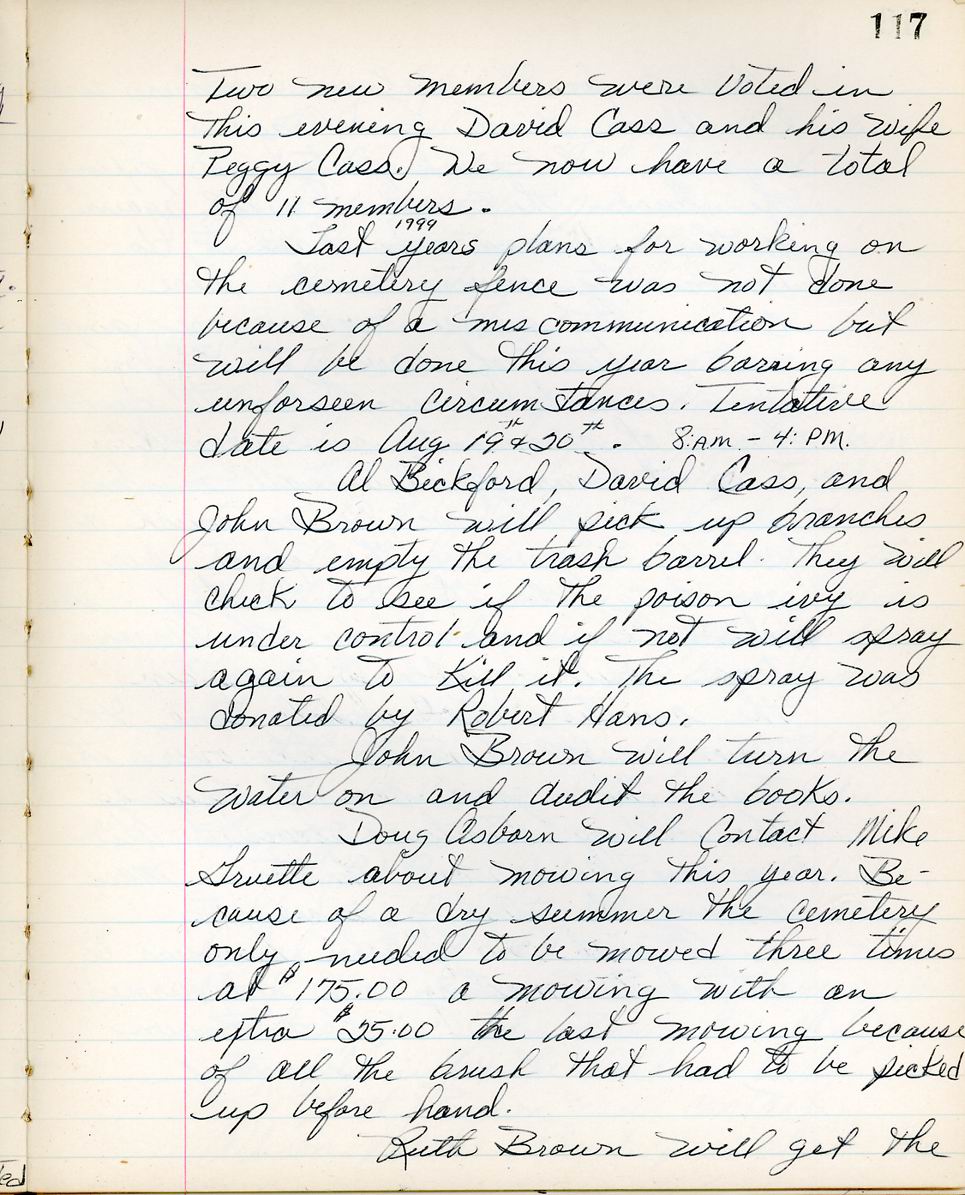 117
Two new members were voted in
this evening David Cass and his wife
Peggy Cass. We now have a total
of 11 members.
1999
Last years plans for working on
the cemetery fence was not done
because of a mis communication but
will be done this year barring any
unforseen circumstances. Tentative
date is Aug 19th & 20th. 8:AM - 4:PM.
Al Bickford, David Cass, and
John Brown will pick up branches
and empty the trash barrel. They will
check to see if the poison ivy is
under control and if not will spray
again to kill it. The spray was
donated by Robert Hans.
John Brown will turn the
water on and audit the books.
Doug Osborn will contact Mike
about mowing this year. Be-
cause of a dry summer the cemetery
only needed to be mowed three times
at $175.00 a mowing with an
extra $25.00 the last mowing because
of all the brush that had to be picked
up before hand.
Ruth Brown will get the